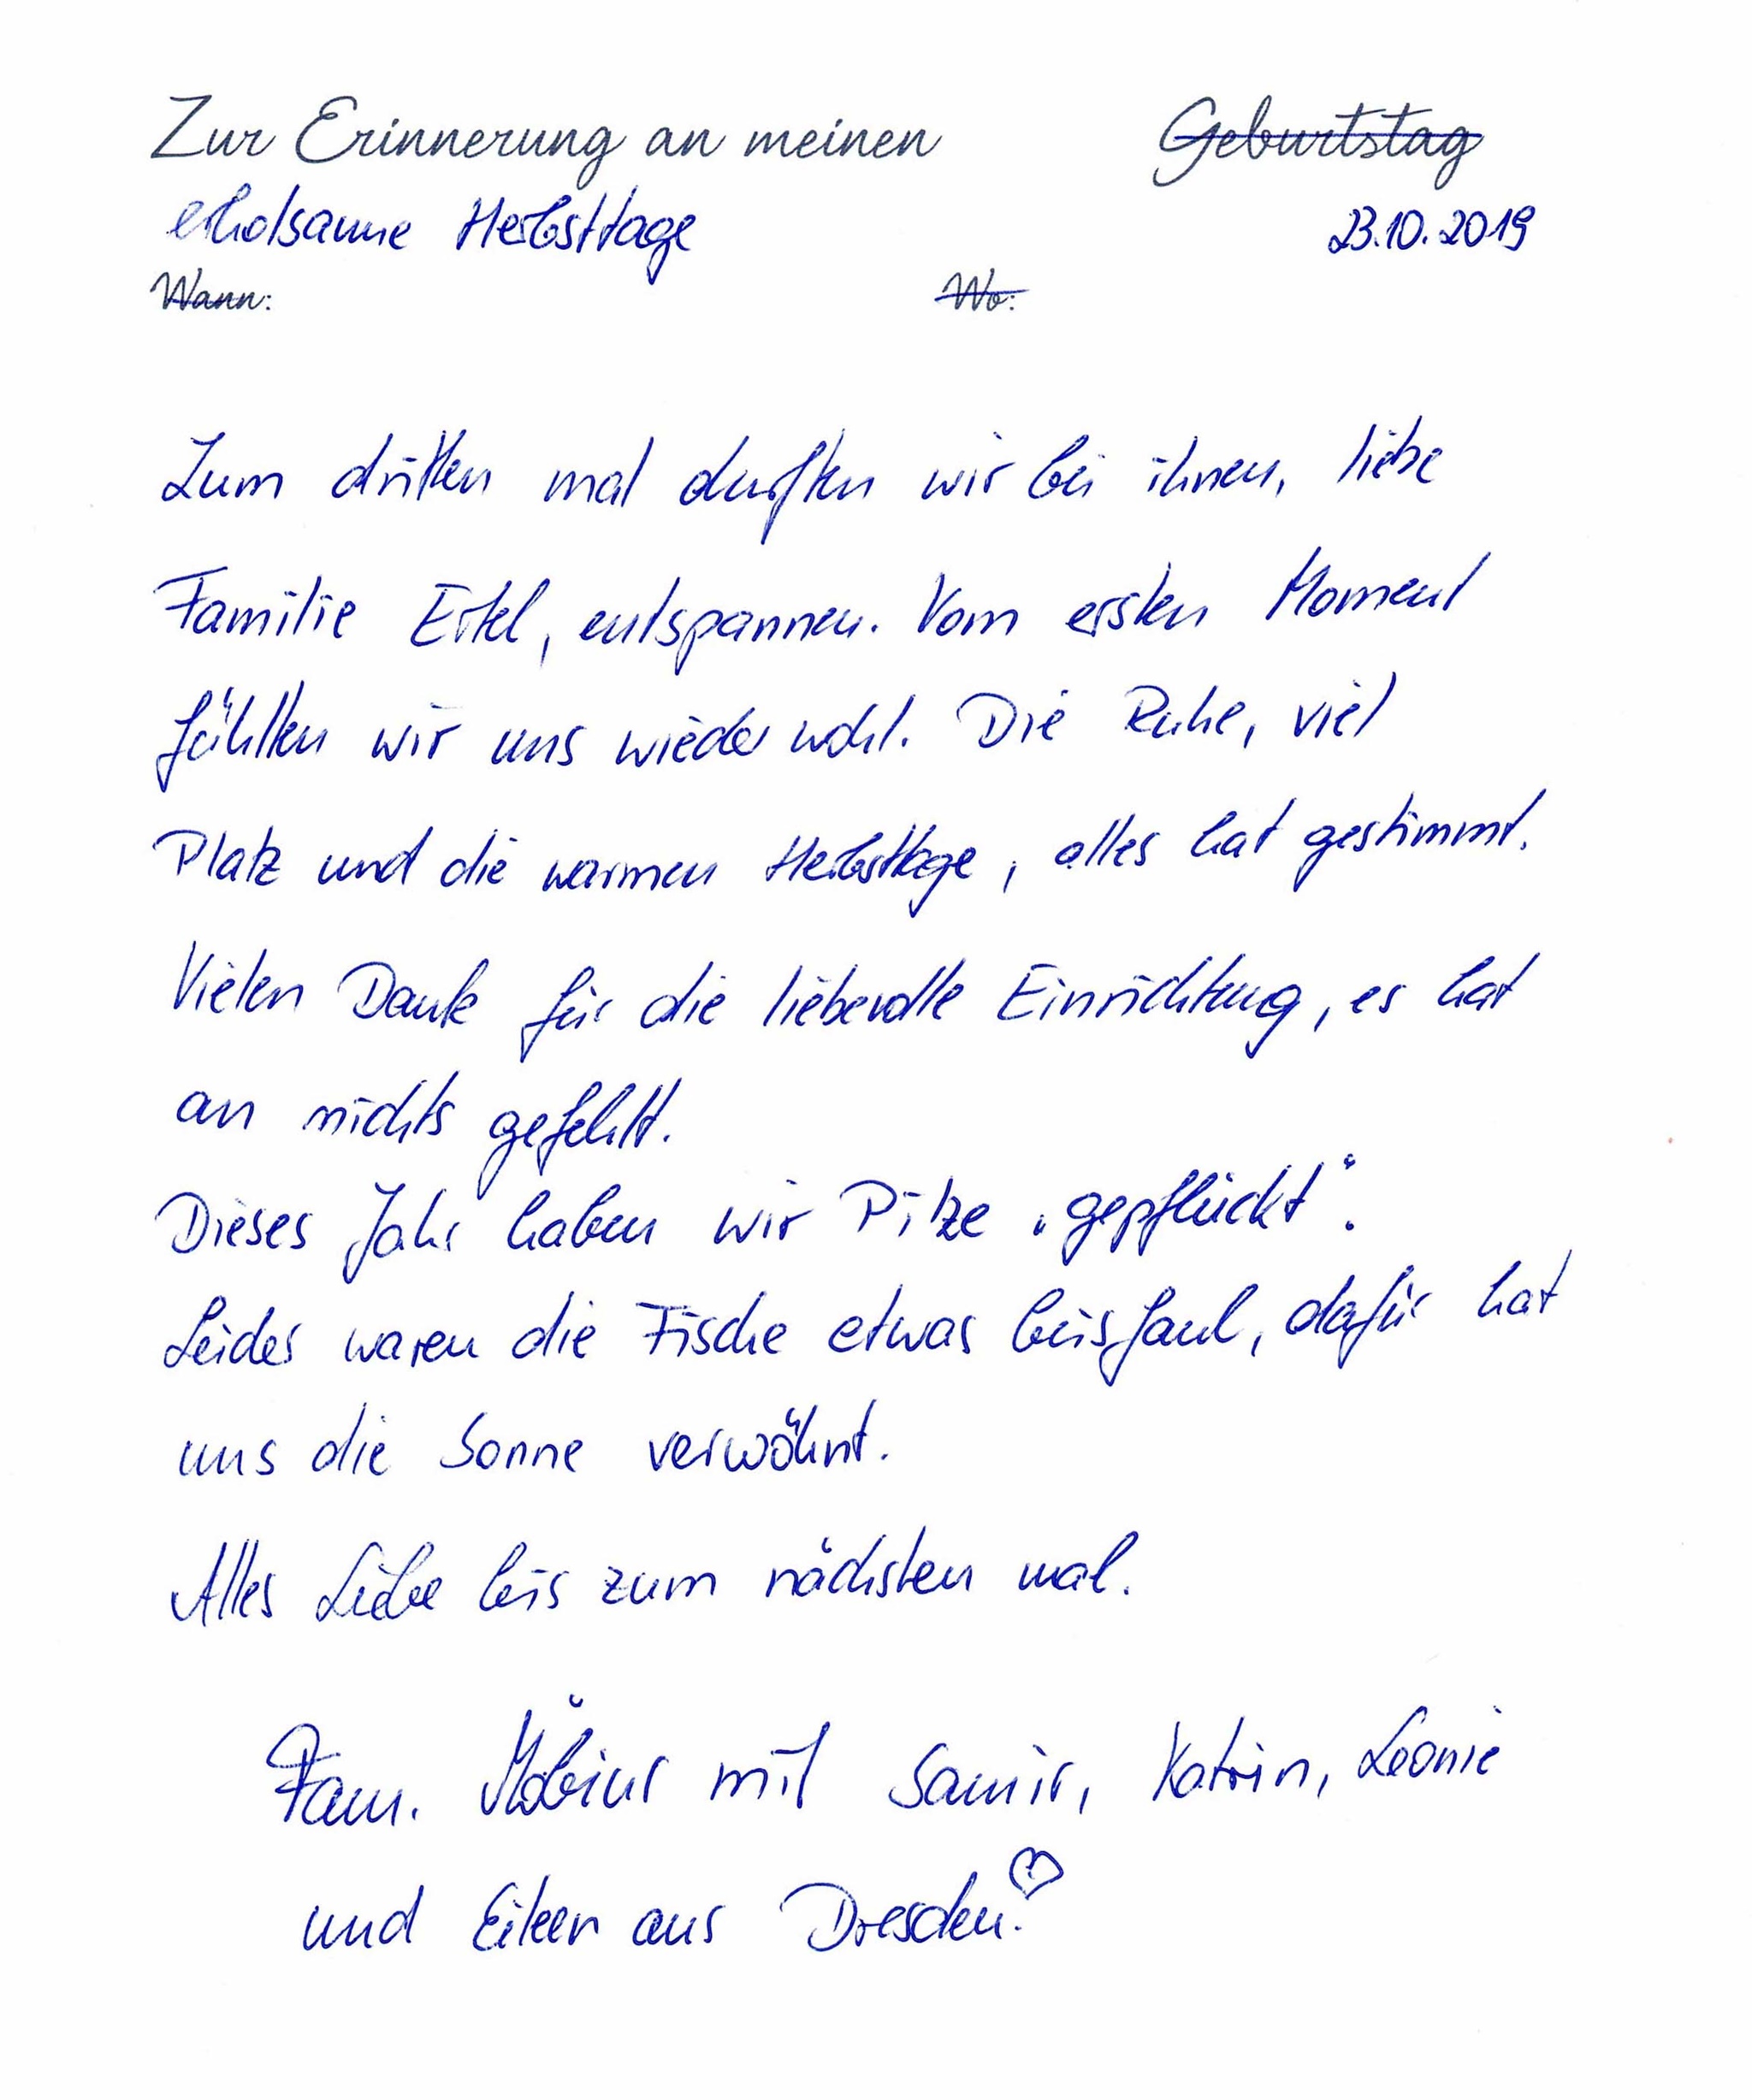 Zur Erinnerung an meinen Geburtstag
erholsame Herbsttage 23.10.2019
Wann: Wo:
Zum dritten mal durften wir bei ihnen, liebe
Familie Ertel, entspannen. Vom ersten Moment
fühlten wir uns wieder wohl. Die Ruhe, viel
Platz und die warmen Herbsttage, alles hat gestimmt.
Vielen Dank für die liebevolle Einrichtung, es hat
an nichts gefehlt.
Dieses Jahr haben wir Pilze „gepflückt“.
Leider waren die Fische etwas beisfaul, dafür hat
uns die Sonne verwöhnt.
Alles Liebe bis zum nächsten mal.
Fam. Möbius mit Samir, Katrin, Leonie
und Eileen aus Dresden.